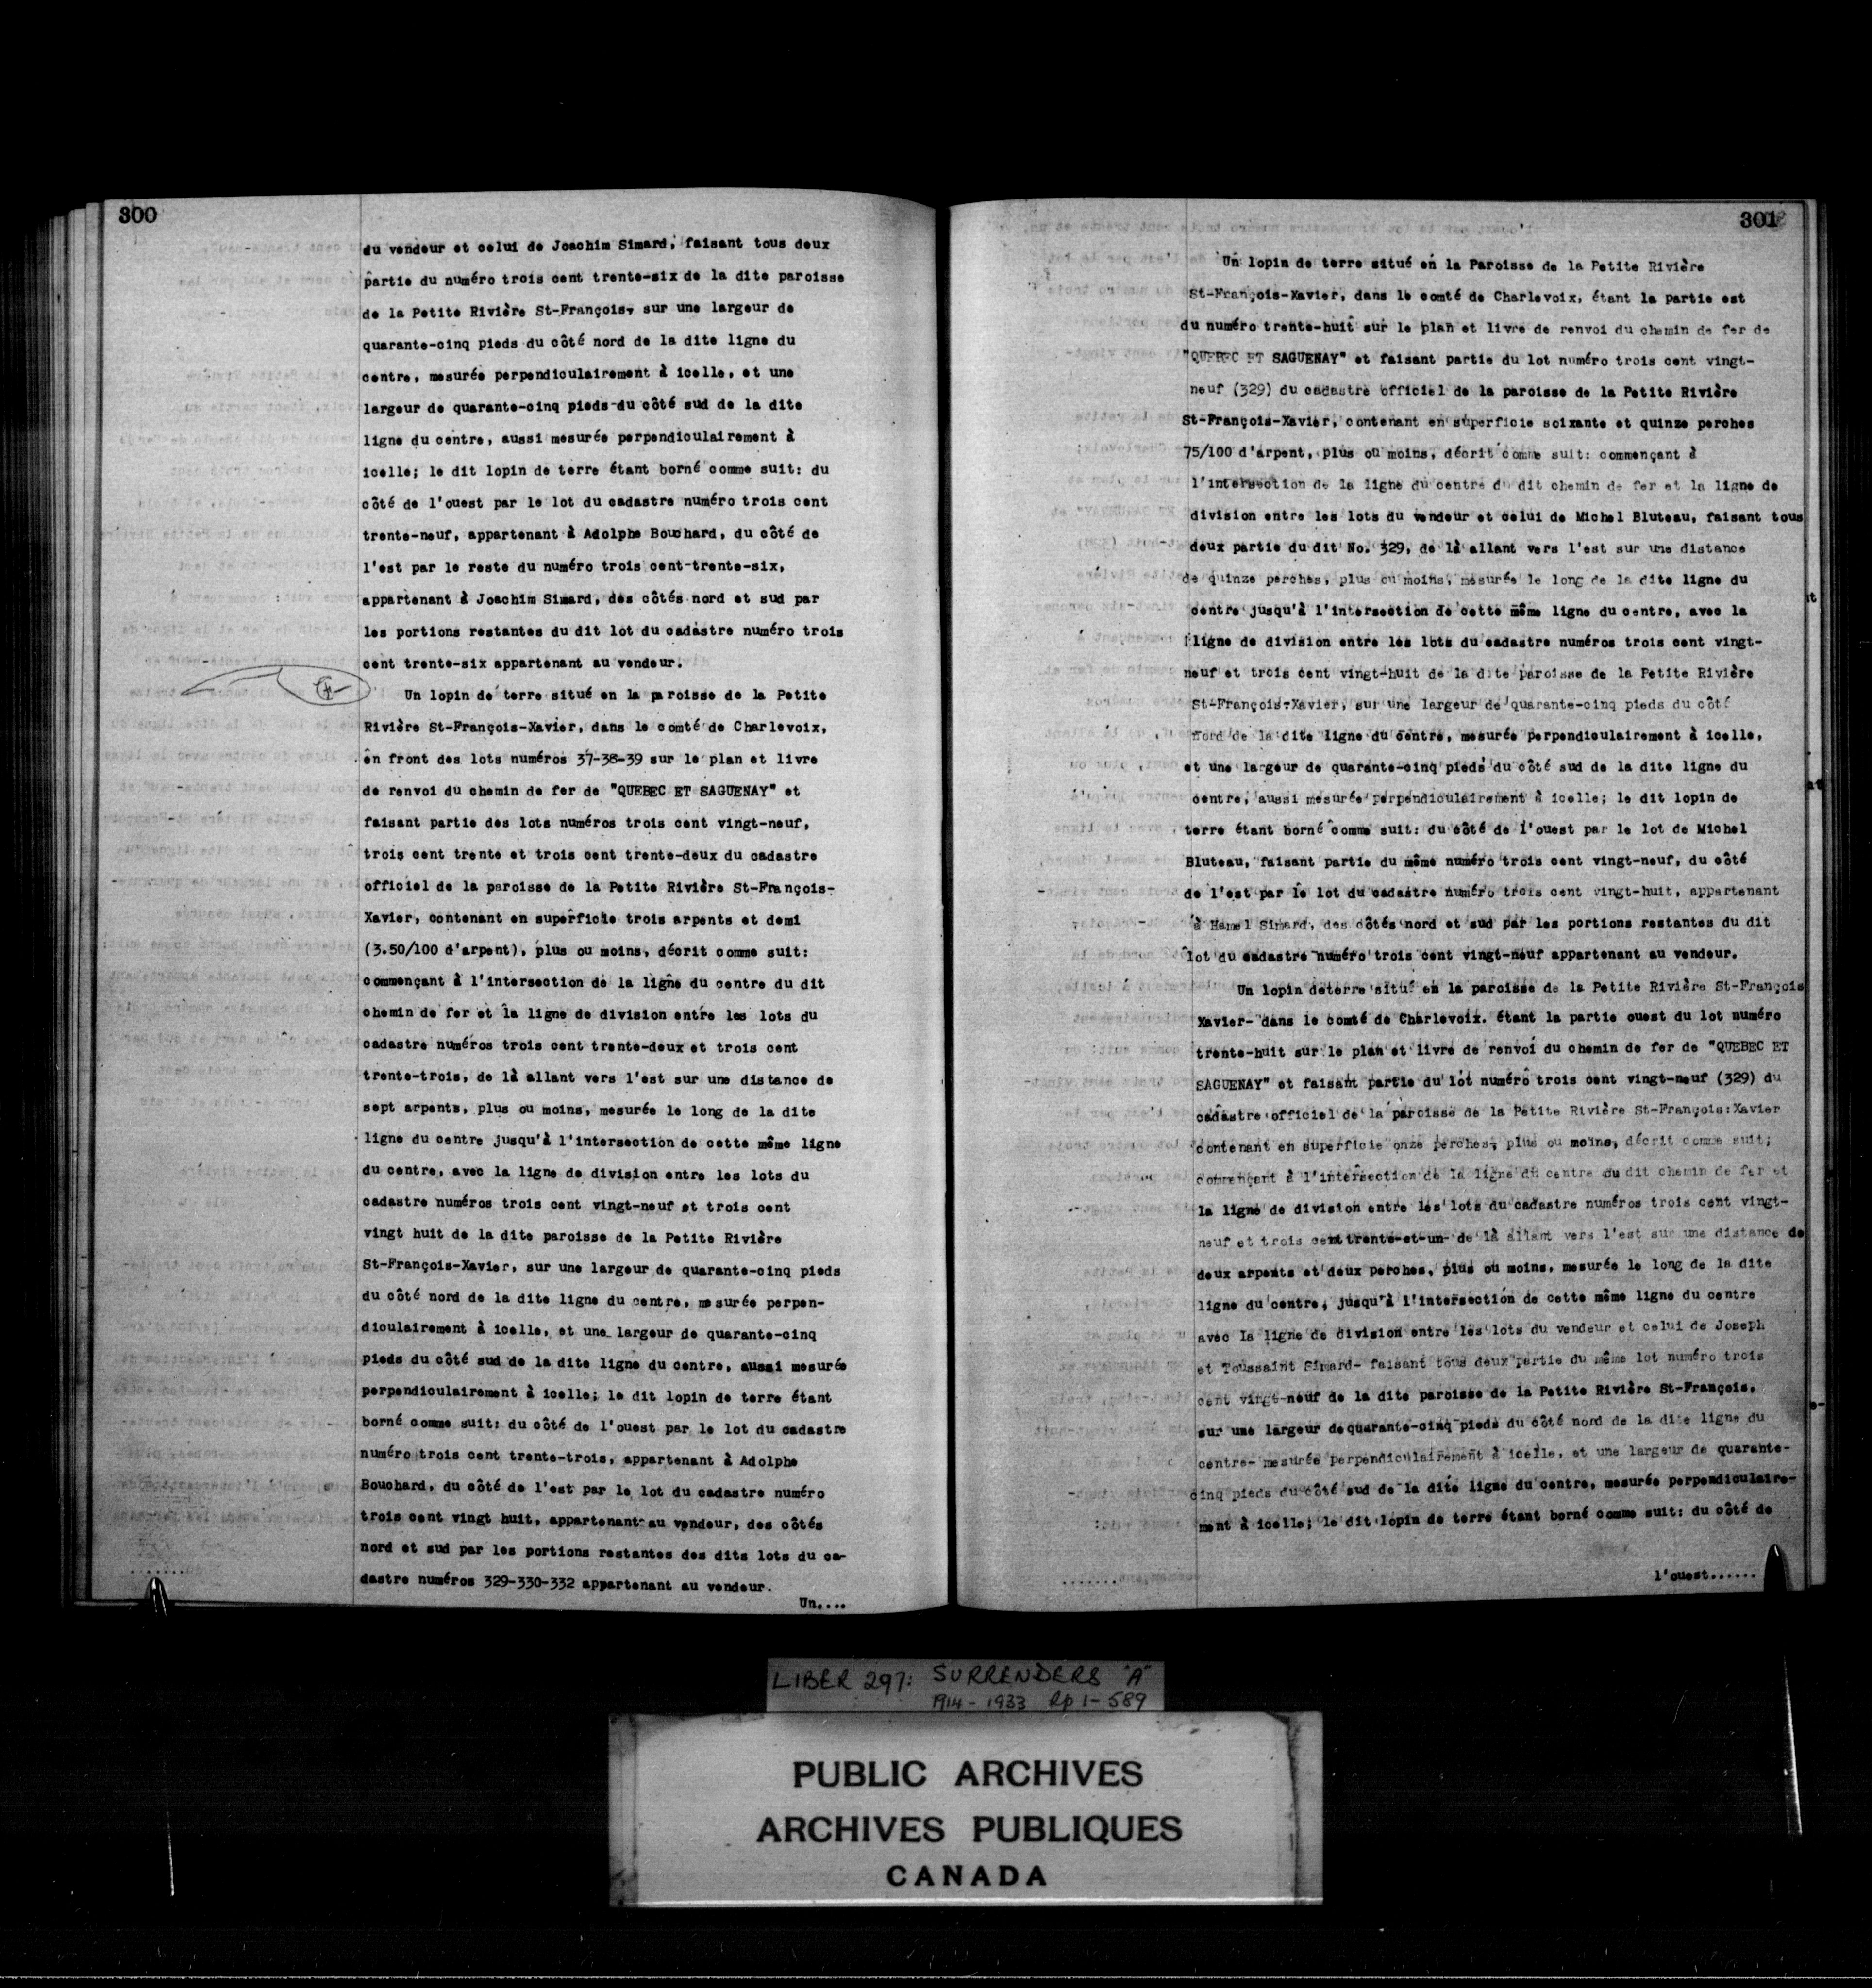 300
du vendeur et celui de Joachim Simard, faisant tous deux
partie du numéro trois cent trente-six de la dite paroisse
de la Petite Rivière St-François, sur une largeur de
quarante-cinq pieds du côté nord de la dite ligne du
centre, mesurée perpendiculairement à icelle, et une
largeur de quarante-cinq pieds du côté sud de la dite
ligne du centre, aussi mesurée perpendiculairement à
icelle; le dit lopin de terre étant borné comme suit: du
côté de l'ouest par le lot du cadastre numéro trois cent
trente-neuf, appartenant à Adolphe Bouchard, du côté de
l'est par le reste du numéro trois cent-trente-six,
appartenant à Joachim Simard, des côtés nord et sud par
les portions restantes du dit lot du cadastre numéro trois
cent trente-six appartenant au vendeur.
Un lopin de terre situé en la paroisse de la Petite
Rivière St-François-Xavier, dans le comté de Charlevoix,
en front des lots numéros 37-38-39 sur le plan et livre
de renvoi du chemin de fer de "QUEBEC ET SAGUENAY" et
faisant partie des lots numéros trois cent vingt-neuf,
trois cent trente et trois cent trente-deux du cadastre
officiel de la paroisse de la Petite Rivière St-François-
Xavier, contenant en superficie trois arpents et demi
(3.50/100 d'arpent), plus ou moins, décrit comme suit:
commençant à l'intersection de la ligne du centre du dit
chemin de fer et la ligne de division entre les lots du
cadastre numéros trois cent trente-deux et trois cent
trente-trois, de là allant vers l'est sur une distance de
sept arpents, plus ou moins, mesurée le long de la dite
ligne du centre jusqu'à l'intersection de cette même ligne
du centre, avec la ligne de division entre les lots du
cadastre numéros trois cent vingt-neuf et trois cent
vingt huit de la dite paroisse de la Petite Rivière
St-François-Xavier, sur une largeur de quarante-cinq pieds
du côté nord de la dite ligne du centre, mesurée perpen-
diculairement à icelle, et une largeur de quarante-cinq
pieds du côté sud de la dite ligne du centre, aussi mesurée
perpendiculairement à icelle; le dit lopin de terre étant
borné comme suit: du côté de l'ouest par le lot du cadastre
numéro trois cent trente-trois, appartenant à Adolphe
Bouchard, du côté de l'est par le lot du cadastre numéro
trois cent vingt huit, appartenant au vendeur, des côtés
nord et sud par les portions restantes des dits lots du ca-
dastre numéros 329-330-332 appartenant au vendeur.
Un....
301
Un lopin de terre situé en la Paroisse de la Petite Rivière
St-François-Xavier, dans le comté de Charlevoix, étant la partie est
du numéro trente-huit sur le plan et livre de renvoi du chemin de fer de
"QUEBEC ET SAGUENAY" et faisant partie du lot numéro trois cent vingt-
neuf (329) du cadastre officiel de la paroisse de la Petite Rivière
St-François-Xavier, contenant en superficie soixante et quinze perches
75/100 d'arpent, plus ou moins, décrit comme suit: commençant à
l'intersection de la ligne du centre du dit chemin de fer et la ligne de
division entre les lots du vendeur et celui de Michel Bluteau, faisant tous
deux partie du dit No. 329, de là allant vers l'est sur une distance
de quinze perches, plus ou moins, mesurée le long de la dite ligne du
centre jusqu'à l'intersection de cette même ligne du centre, avec la
ligne de division entre les lots du cadastre numéros trois cent vingt-
neuf et trois cent vingt-huit de la dite paroisse de la Petite Rivière
St-François-Xavier, sur une largeur de quarante-cinq pieds du côté
nord de la dite ligne du centre, mesurée perpendiculairement à icelle,
et une largeur de quarante-cinq pieds du côté sud de la dite ligne du
centre, aussi mesurée perpendiculairement à icelle; le dit lopin de
terre étant borné comme suit: du côté de l'ouest par le lot de Michel
Bluteau, faisant partie du même numéro trois cent vingt-neuf, du côté
de l'est par le lot du cadastre numéro trois cent vingt-huit, appartenant
à Hamel Simard, des côtés nord et sud par les portions restantes du dit
lot du cadastre numéro trois cent vingt-neuf appartenant au vendeur.
Un lopin deterre situé en la paroisse de la Petite Rivière St-François
Xavier- dans le comté de Charlevoix. étant la partie ouest du lot numéro
trente-huit sur le plan et livre de renvoi du chemin de fer de "QUEBEC ET
SAGUENAY" et faisant partie du lot numéro trois cent vingt-neuf (329) du
cadastre officiel de la paroisse de la Petite Rivière St-François:Xavier
contenant en superficie onze perches, plus ou moins, décrit comme suit;
commençant à l'intersection de la ligne du centre du dit chemin de fer et
la ligne de division entre les lots du cadastre numéros trois cent vingt-
neuf et trois cent trente-et-un- de là allant vers l'est sur une distance de
deux arpents et deux perches, plus ou moins, mesurée le long de la dite
ligne du centre, jusqu'à l'intersection de cette même ligne du centre
avec la ligne de division entre les lots du vendeur et celui de Joseph
et Toussaint Simard- faisant tous deux partie du même lot numéro trois
cent vingt-neuf de la dite paroisse de la Petite Rivière St-François,
sur une largeur dequarante-cinq pieds du côté nord de la dite ligne du
centre- mesurée perpendiculairement à icelle, et une largeur de quarante-
cinq pieds du côté sud de la dite ligne du centre, mesurée perpendiculaire-
ment à icelle; le dit lopin de terre étant borné comme suit: du côté de
l'ouest......
LIBER 297: SURRENDERS "A"
1914-1933 Rp 1-589
PUBLIC ARCHIVES
ARCHIVES PUBLIQUES
CANADA